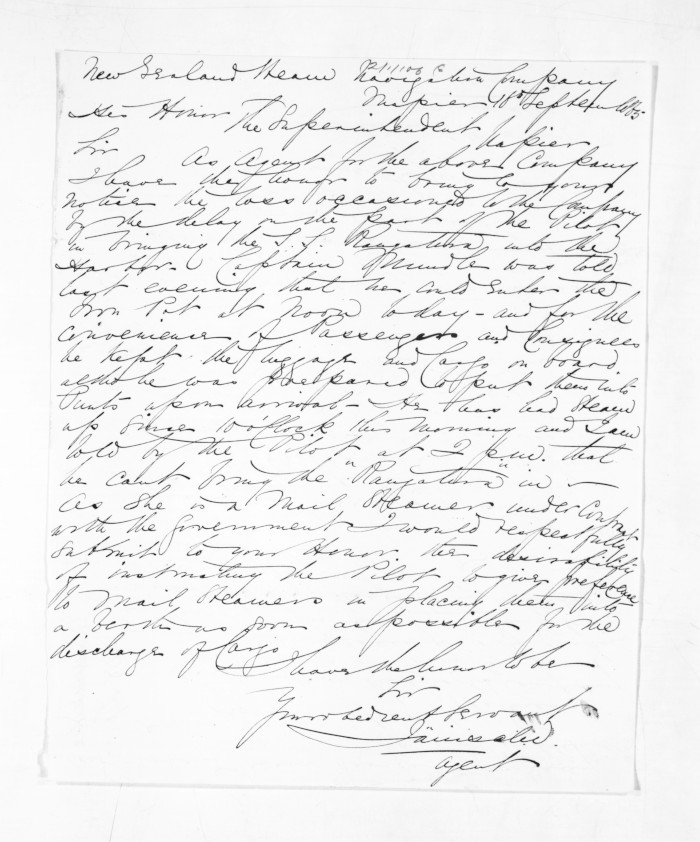 New Zealand Steam Navigation Company
Napier 18th Septem 1865
His Honor
The Superintendent Napier
Sir As Agent for the above Company
I have the honor to bring to your
notice the loss occasioned to the Company
by the delay on the part of the Pilot
in bringing the S.S. Rangatira into the
Harbor. Captain Mundle was told
last evening that he could enter the
Iron Pot at noon today - and for the
convenience of Passengers and Consignees
he kept the luggage and Cargo on board
altho he was prepared to put them into
Punts upon arrival - He has had steam
up since 10 o'Clock this morning and I am
told by the Pilot at 2 p.m. that
he cant bring the "Rangatira" in -
As she is a Mail Steamer under Contract
with the Government I would respectfully
submit to your Honor the desirability
of instructing the Pilot to give preference
to Mail Steamers in placing them into
a berth as soon as possible for the
discharge of Cargo
I have the honor to be
Sir
Your obedient Servant
Agent